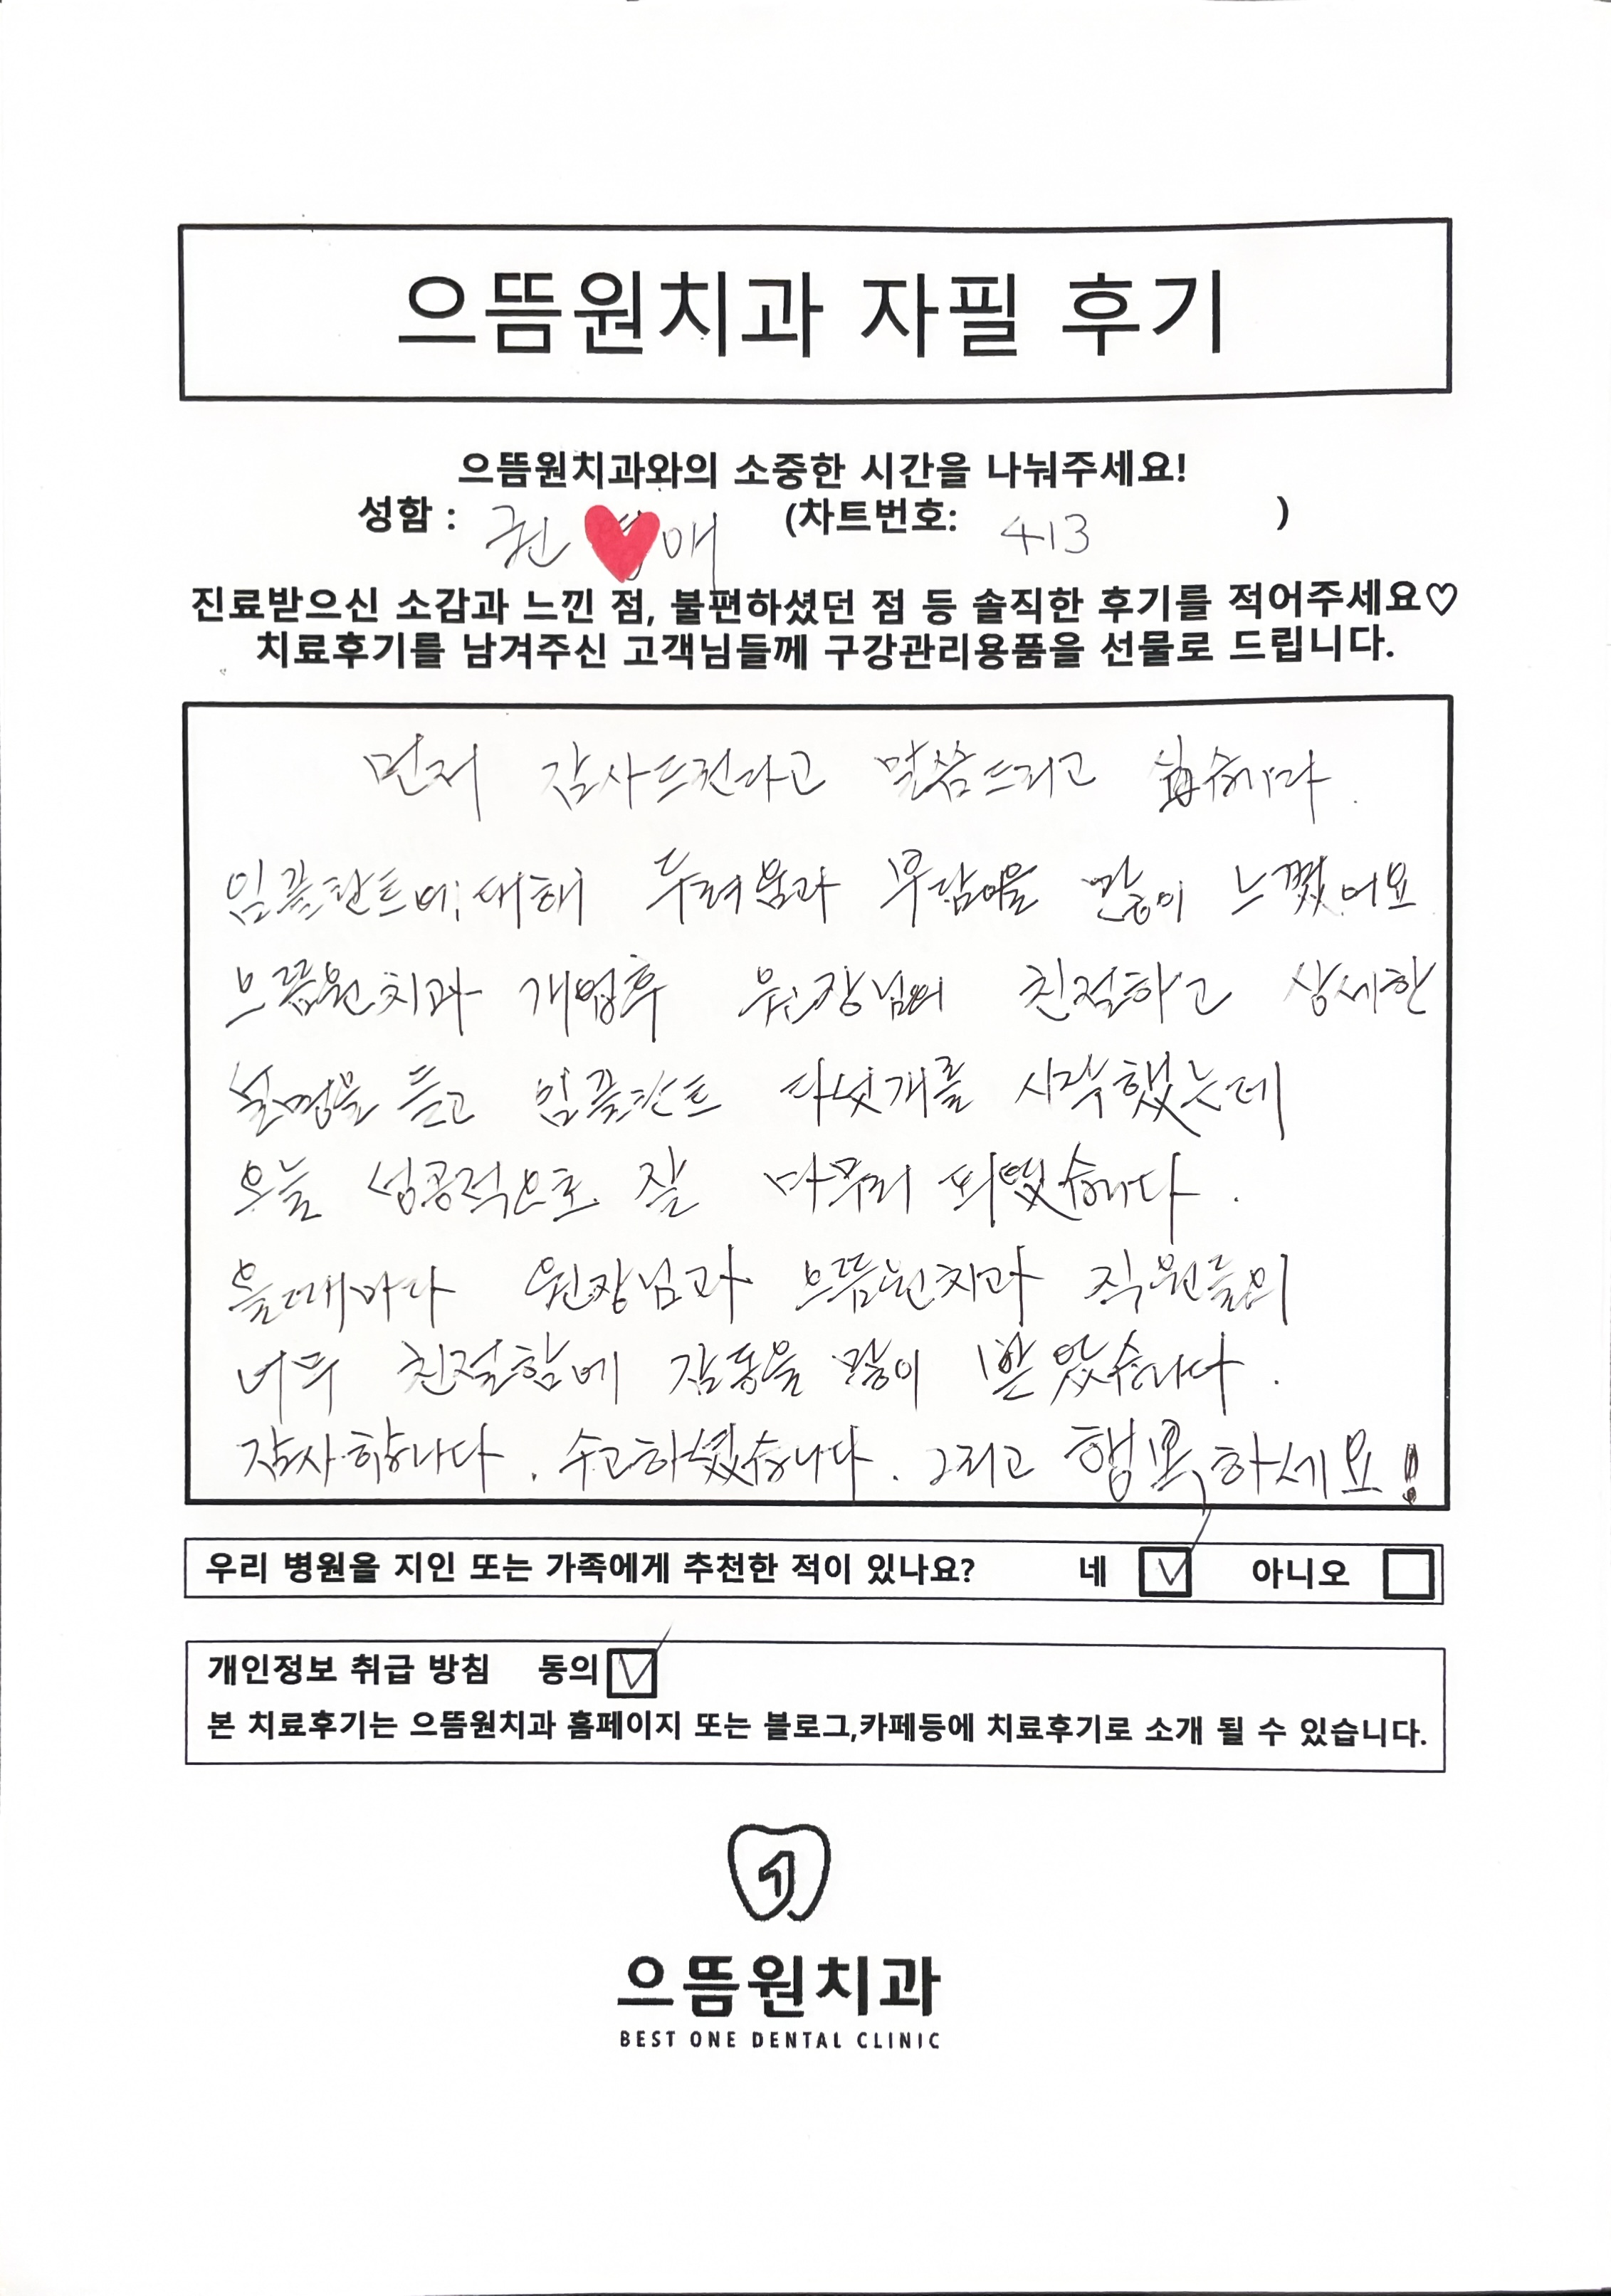 으뜸원치과 자필 후기
으뜸원치과와의 소중한 시간을 나눠주세요!
성함 : 권 애 (차트번호: 413 )
진료받으신 소감과 느낀 점, 불편하셨던 점 등 솔직한 후기를 적어주세요♡
치료후기를 남겨주신 고객님들께 구강관리용품을 선물로 드립니다.
먼저 감사드린다고 말씀드리고 싶습니다.
임플란트에 대해 두려움과 부담을 많이 느꼈어요
으뜸원치과 개업후 원장님의 친절하고 상세한
설명을 듣고 임플란트 다섯개를 시작했는데
오늘 성공적으로 잘 마무리 되었습니다.
올때마다 원장님과 으뜸원치과 직원들의
너무 친절함에 감동을 많이 받았습니다.
감사합니다. 수고하셨습니다. 그리고 행복하세요!
우리 병원을 지인 또는 가족에게 추천한 적이 있나요? 네 ☑ 아니오 ☐
개인정보 취급 방침 동의 ☑
본 치료후기는 으뜸원치과 홈페이지 또는 블로그,카페등에 치료후기로 소개 될 수 있습니다.
1
으뜸원치과
BEST ONE DENTAL CLINIC